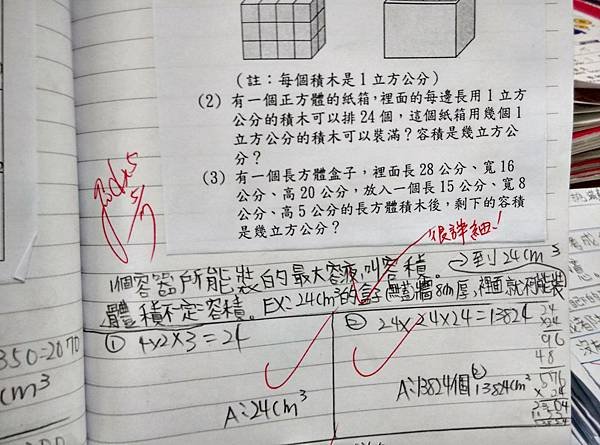 (註：每個積木是1立方公分)
(2) 有一個正方體的紙箱，裡面的每邊長用1立方
公分的積木可以排24個，這個紙箱用幾個1
立方公分的積木可以裝滿？容積是幾立方公
分？
(3) 有一個長方體盒子，裡面長28公分、寬16
公分、高20公分，放入一個長15公分、寬8
公分、高5公分的長方體積木後，剩下的容積
是幾立方公分？
很詳細！
1個容器所能裝的最大容液,叫容積。
到24cm³
體積不一定=容積。EX:24cm³的盒子
8cm厚,裡面就不可能裝
① 4×2×3=24
A:24cm³
② 24×24×24=13824
A:13824個 13824cm³
24
×24
96
48
576
350=2070
cm³